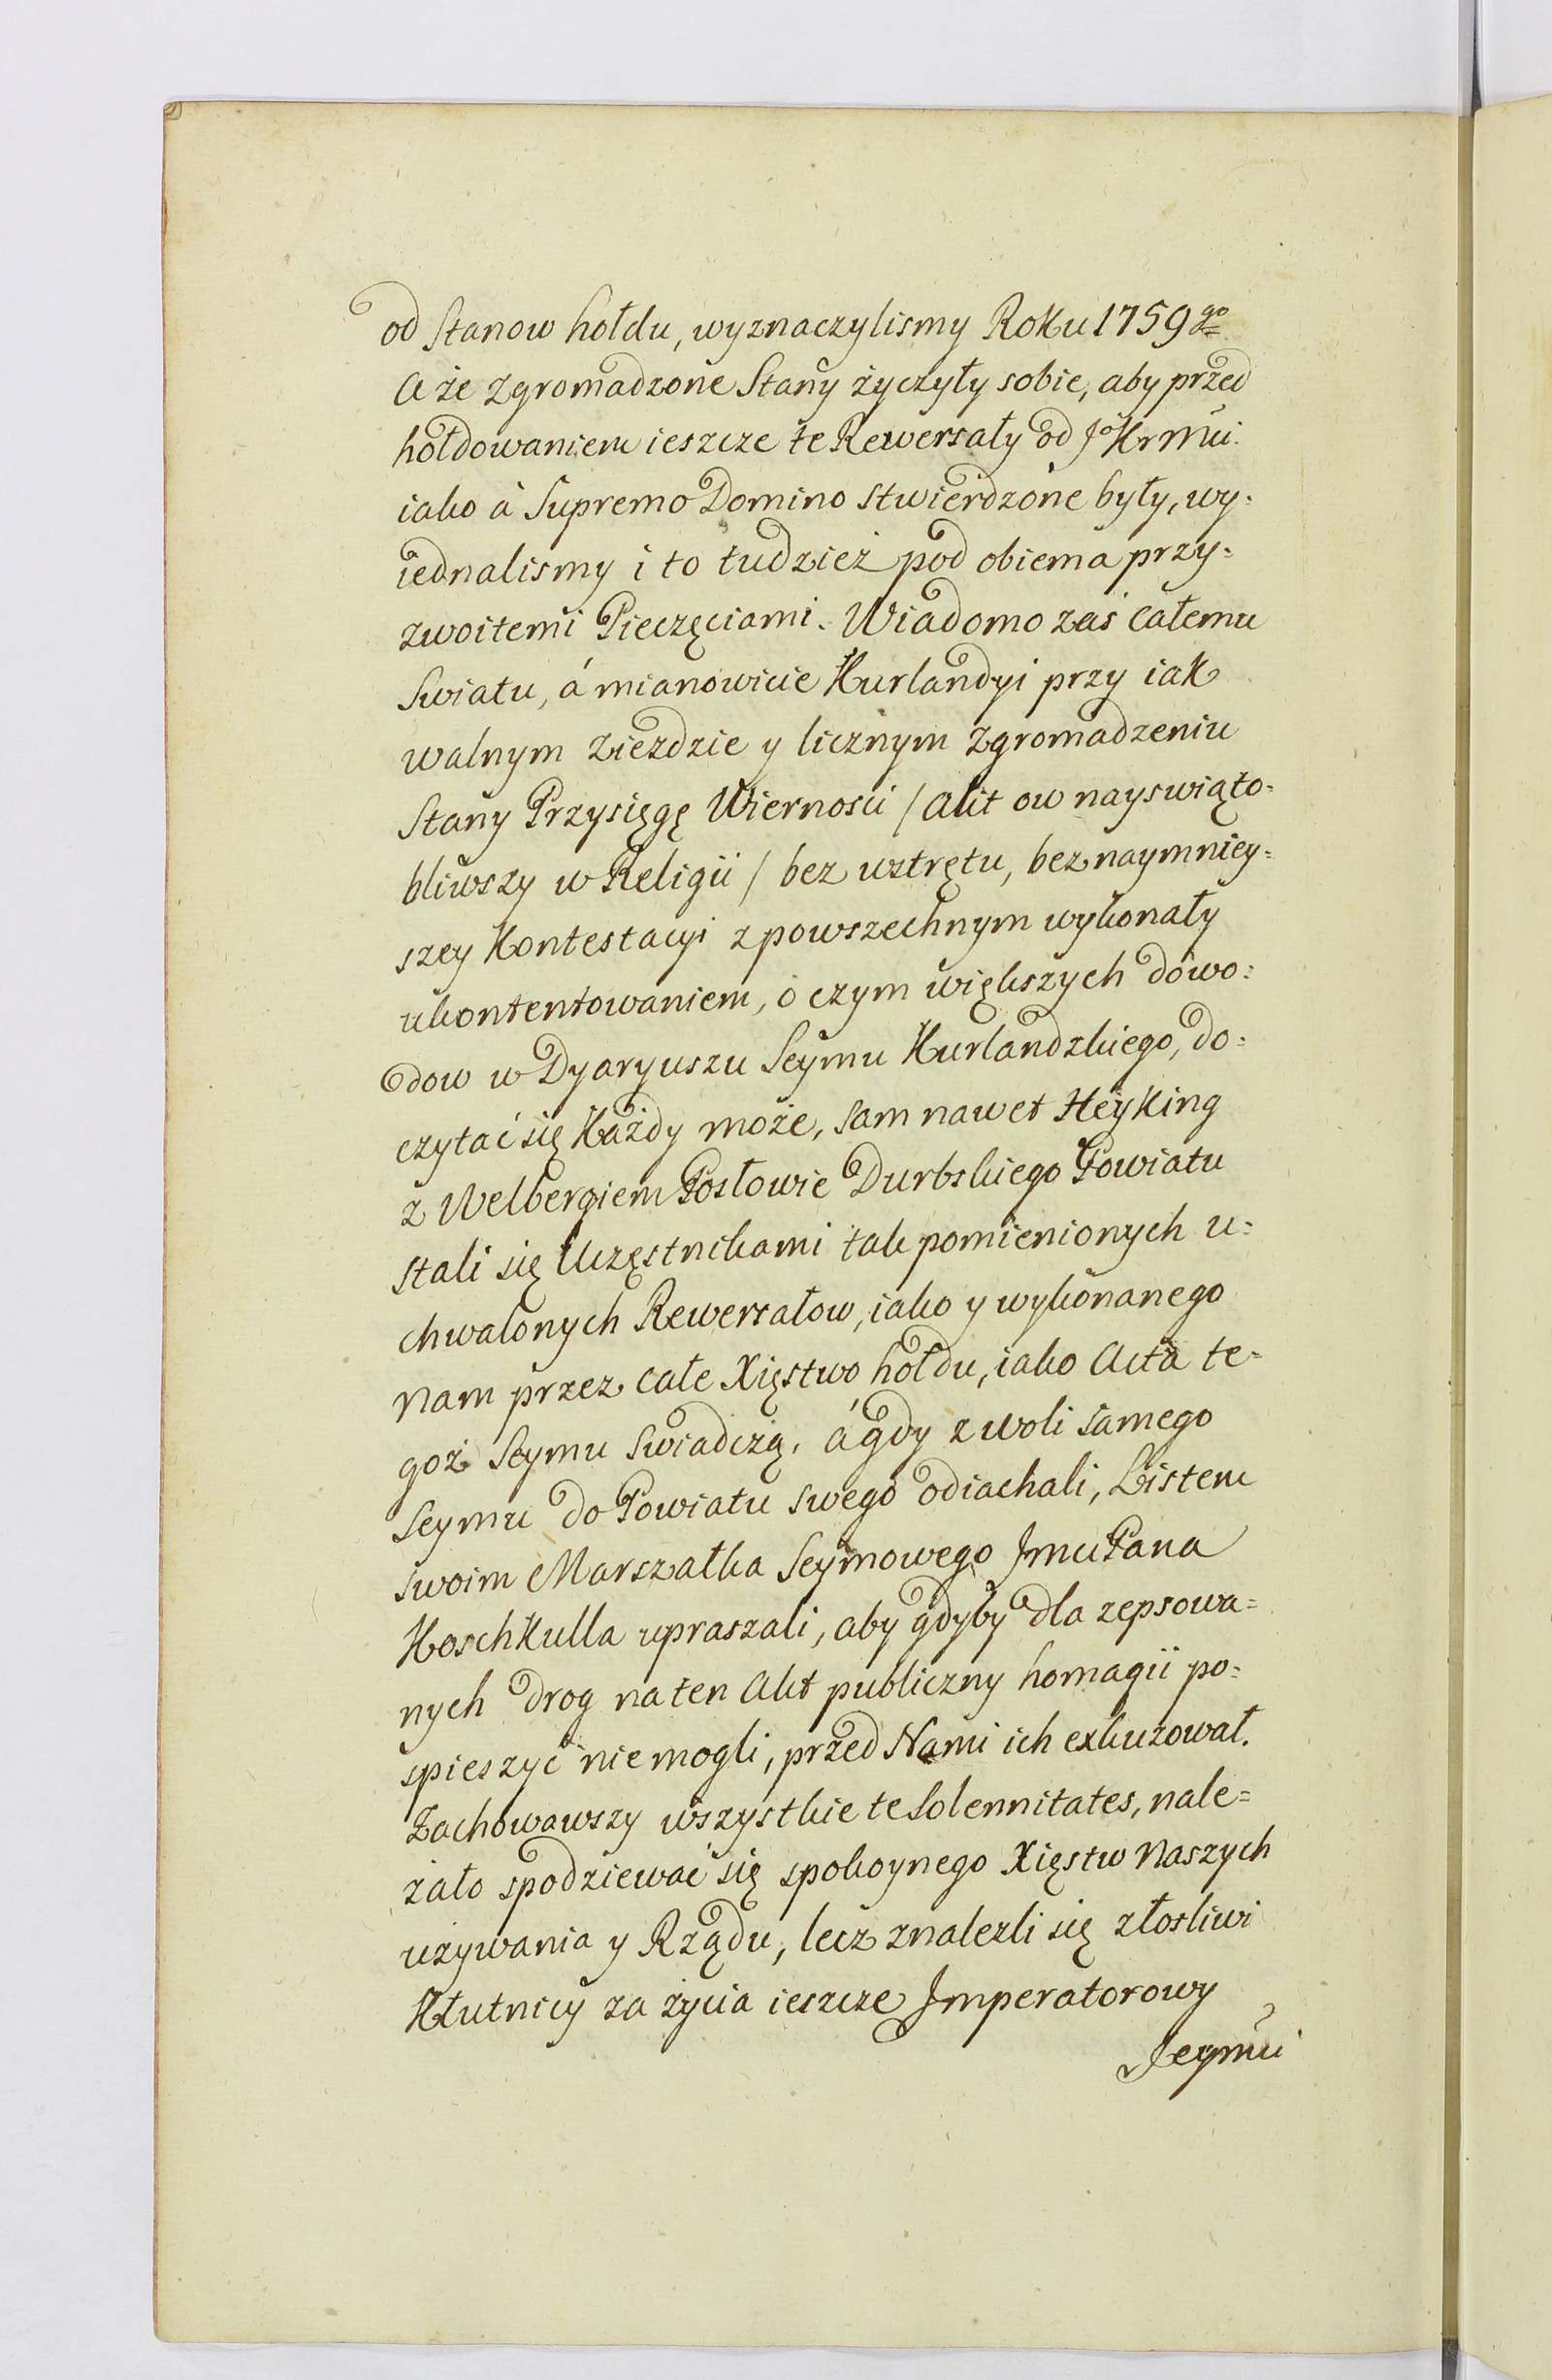 od Stanow hołdu, wyznaczylismy Roku 1759go
A że zgromadzone Stany życzyły sobie, aby przed
hołdowaniem ieszcze te Rewersały od Jo Krmci
iako à Supremo Domino stwierdzone były, wy:
iednalismy i to tudzież pod obiema przy:
zwoitemi Pieczęciami. Wiadomo zaś całemu
Swiatu, á mianowicie Kurlandyi przy iak
walnym zieździe y licznym zgromadzeniu
Stany Przysięgę Wiernosci / Akt ow nayswiąto:
bliwszy w Religii / bez wstrętu, bez naymniey:
szey Kontestacyi z powszechnym wykonały
ukontentowaniem, o czym większych dowo:
dow w Dyaryuszu Seymu Kurlandzkiego, do:
czytać się Każdy może, sam nawet Heyking
z Welbergiem Posłowie Durbskiego Powiatu
stali się Uczęstnikami tak pomienionych u:
chwalonych Rewersałow, iako y wykonanego
Nam przez całe Xięstwo hołdu, iako Acta te:
goż Seymu swiadczą, á gdy z woli samego
Seymu do Powiatu swego odiachali, Listem
swoim Marszałka Seymowego Jmci Pana
Koschkulla upraszali, aby gdyby dla zepsowa:
nych drog na ten Akt publiczny homagii po:
spieszyć nie mogli, przed Nami ich exkuzował.
Zachowawszy wszystkie te Solennitates, nale:
żało spodziewać się spokoynego Xięstw Naszych
używania y Rządu, lecz znalezli się złosliwi
Kłutnicy za życia ieszcze Imperatorowy
Jeymci